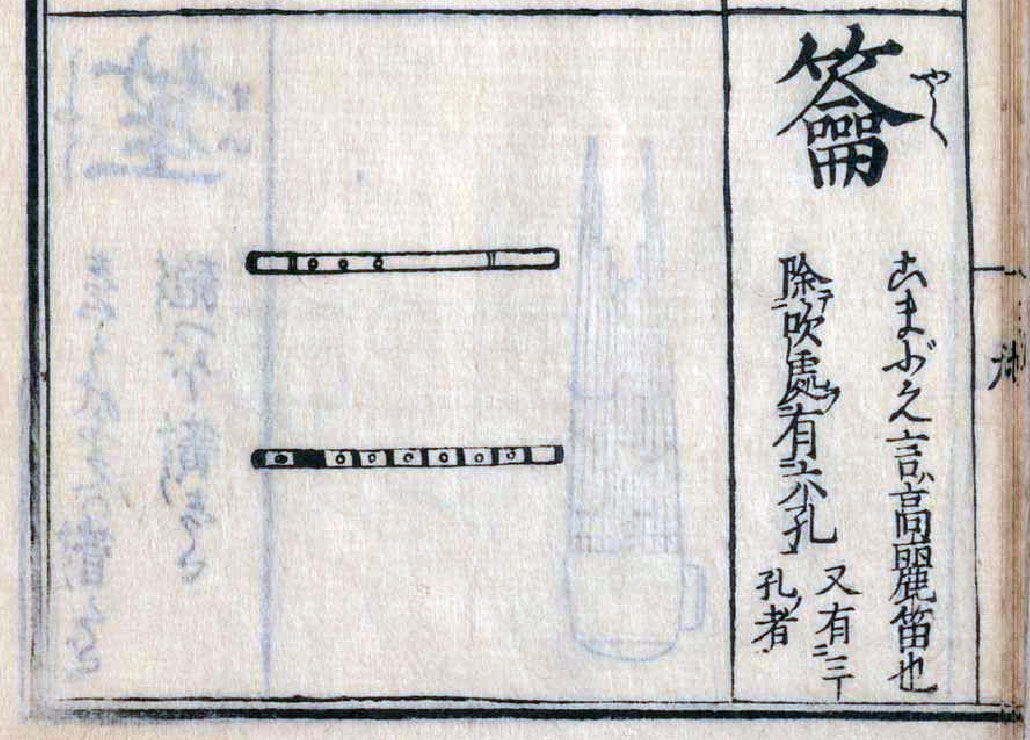 籥
やく
こまぶえ言高麗笛也
除テ吹處ヲ有六孔
又有三
孔者